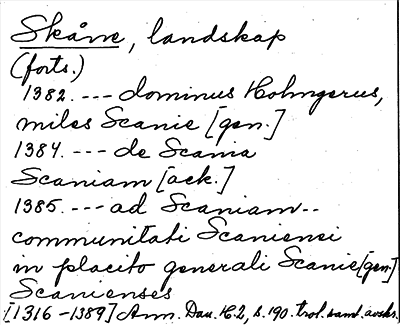 Skåne, landskap
(forts.)
1382. --- dominus Holmgerus,
miles Scanie [gen.]
1384. --- de Scania
Scaniam [ack.]
1385. --- ad Scaniam --
communitati Scaniensi
in placito generali Scanie [gen.]
Scanienses
[1316-1389] Ann. Dan. H.2, s. 190. trol. samt. avskr.